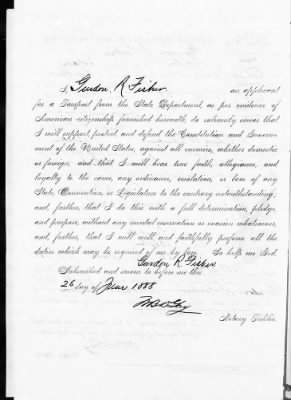 I, Gurdon R Fisher an applicant
for a Passport from the State Department, as per evidence of
American citizenship furnished herewith, do solemnly swear that
I will support, protect, and defend the Constitution and Govern-
ment of the United States, against all enemies, whether domestic
or foreign, and that I will bear true faith, allegiance, and
loyalty to the same, any ordinance, resolution, or law of any
State, Convention, or Legislature to the contrary notwithstanding;
and, further, that I do this with a full determination, pledge,
and purpose, without any mental reservation or evasion whatsoever,
and, further, that I will well and faithfully perform all the
duties which may be required of me by law. So help me God.
Gurdon R. Fisher
Subscribed and sworn to before me this
26 day of June 1888
Notary Public.